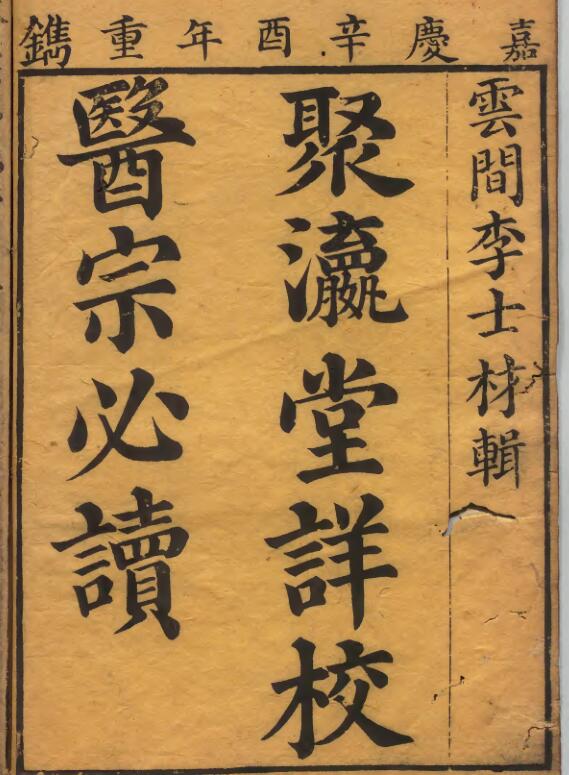 嘉慶辛酉年重鐫
雲間李士材輯
聚瀛堂詳校
醫宗必讀